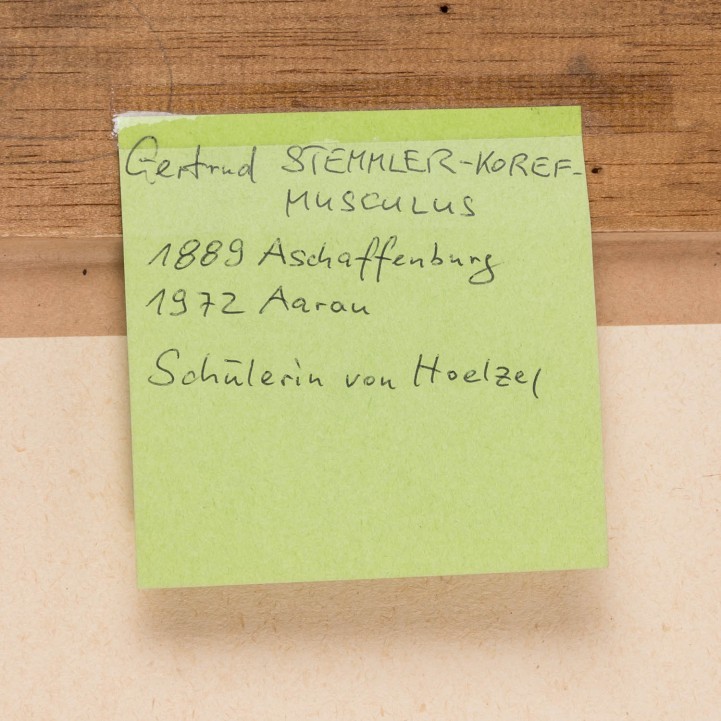 Gertrud STEMMLER-KOREF-
MUSCULUS
1889 Aschaffenburg
1972 Aarau
Schülerin von Hoelzel